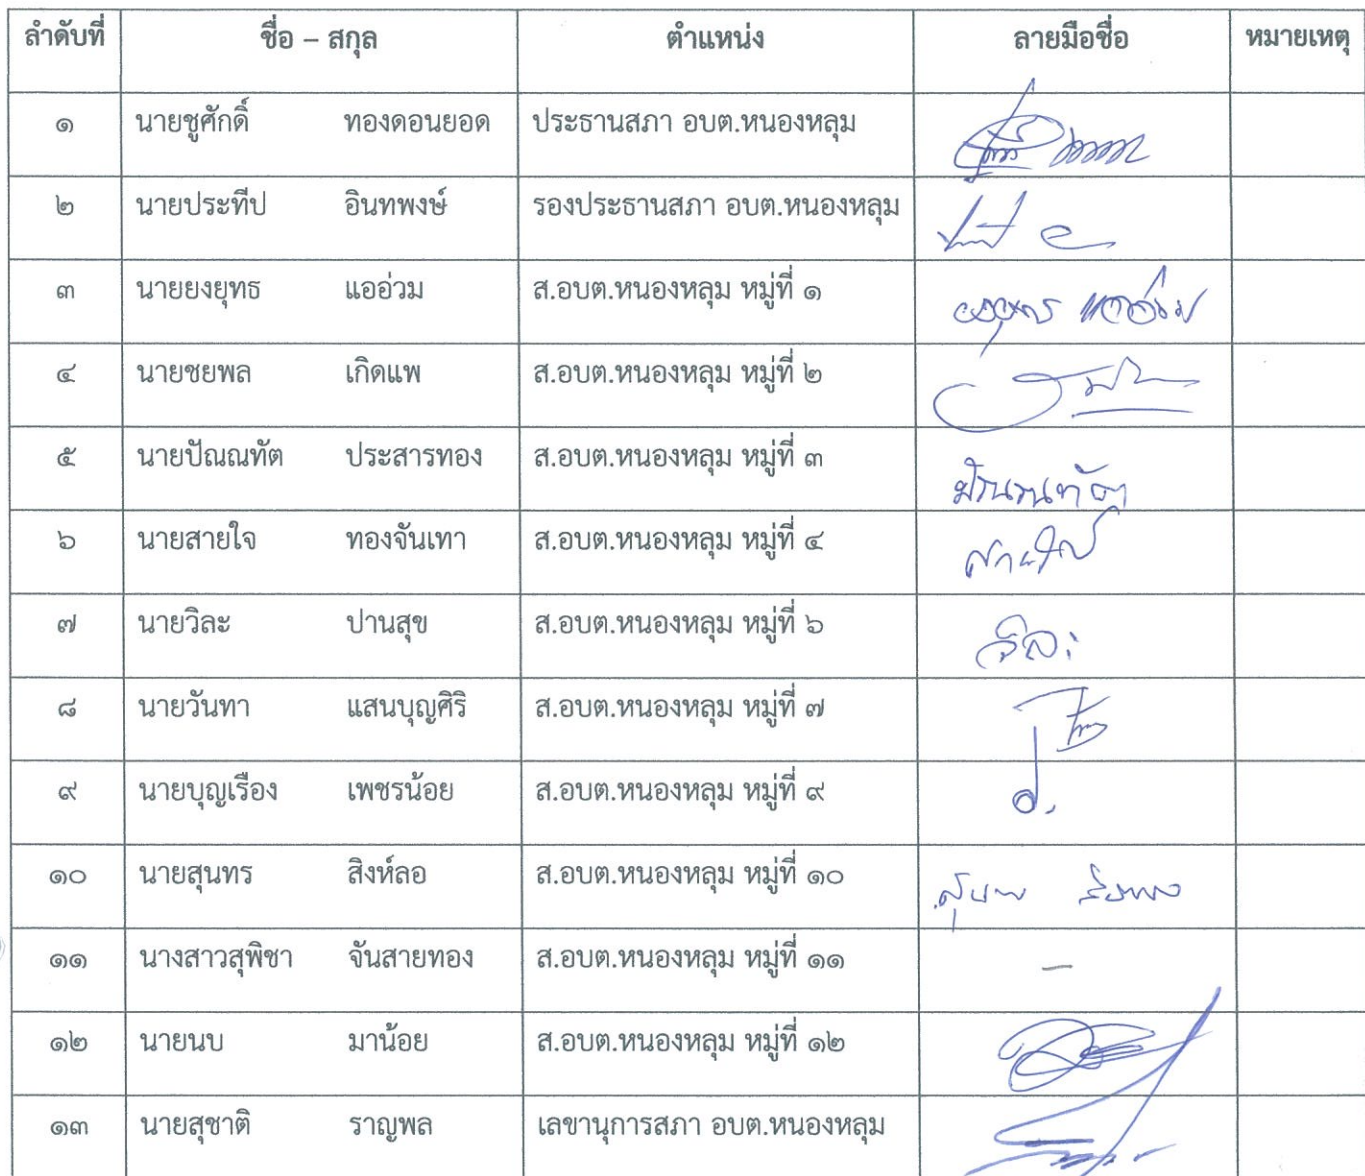 ลำดับที่ ชื่อ – สกุล ตำแหน่ง ลายมือชื่อ หมายเหตุ
๑ นายชูศักดิ์ ทองดอนยอด ประธานสภา อบต.หนองหลุม
๒ นายประทีป อินทพงษ์ รองประธานสภา อบต.หนองหลุม
๓ นายยงยุทธ แออ่วม ส.อบต.หนองหลุม หมู่ที่ ๑ ยงยุทธ แออ่วม
๔ นายชยพล เกิดแพ ส.อบต.หนองหลุม หมู่ที่ ๒
๕ นายปัณณทัต ประสารทอง ส.อบต.หนองหลุม หมู่ที่ ๓ ปัณณทัต
๖ นายสายใจ ทองจันเทา ส.อบต.หนองหลุม หมู่ที่ ๔ สายใจ
๗ นายวิละ ปานสุข ส.อบต.หนองหลุม หมู่ที่ ๖ วิละ
๘ นายวันทา แสนบุญศิริ ส.อบต.หนองหลุม หมู่ที่ ๗
๙ นายบุญเรือง เพชรน้อย ส.อบต.หนองหลุม หมู่ที่ ๙
๑๐ นายสุนทร สิงห์ลอ ส.อบต.หนองหลุม หมู่ที่ ๑๐
๑๑ นางสาวสุพิชา จันสายทอง ส.อบต.หนองหลุม หมู่ที่ ๑๑ –
๑๒ นายนบ มาน้อย ส.อบต.หนองหลุม หมู่ที่ ๑๒
๑๓ นายสุชาติ ราญพล เลขานุการสภา อบต.หนองหลุม